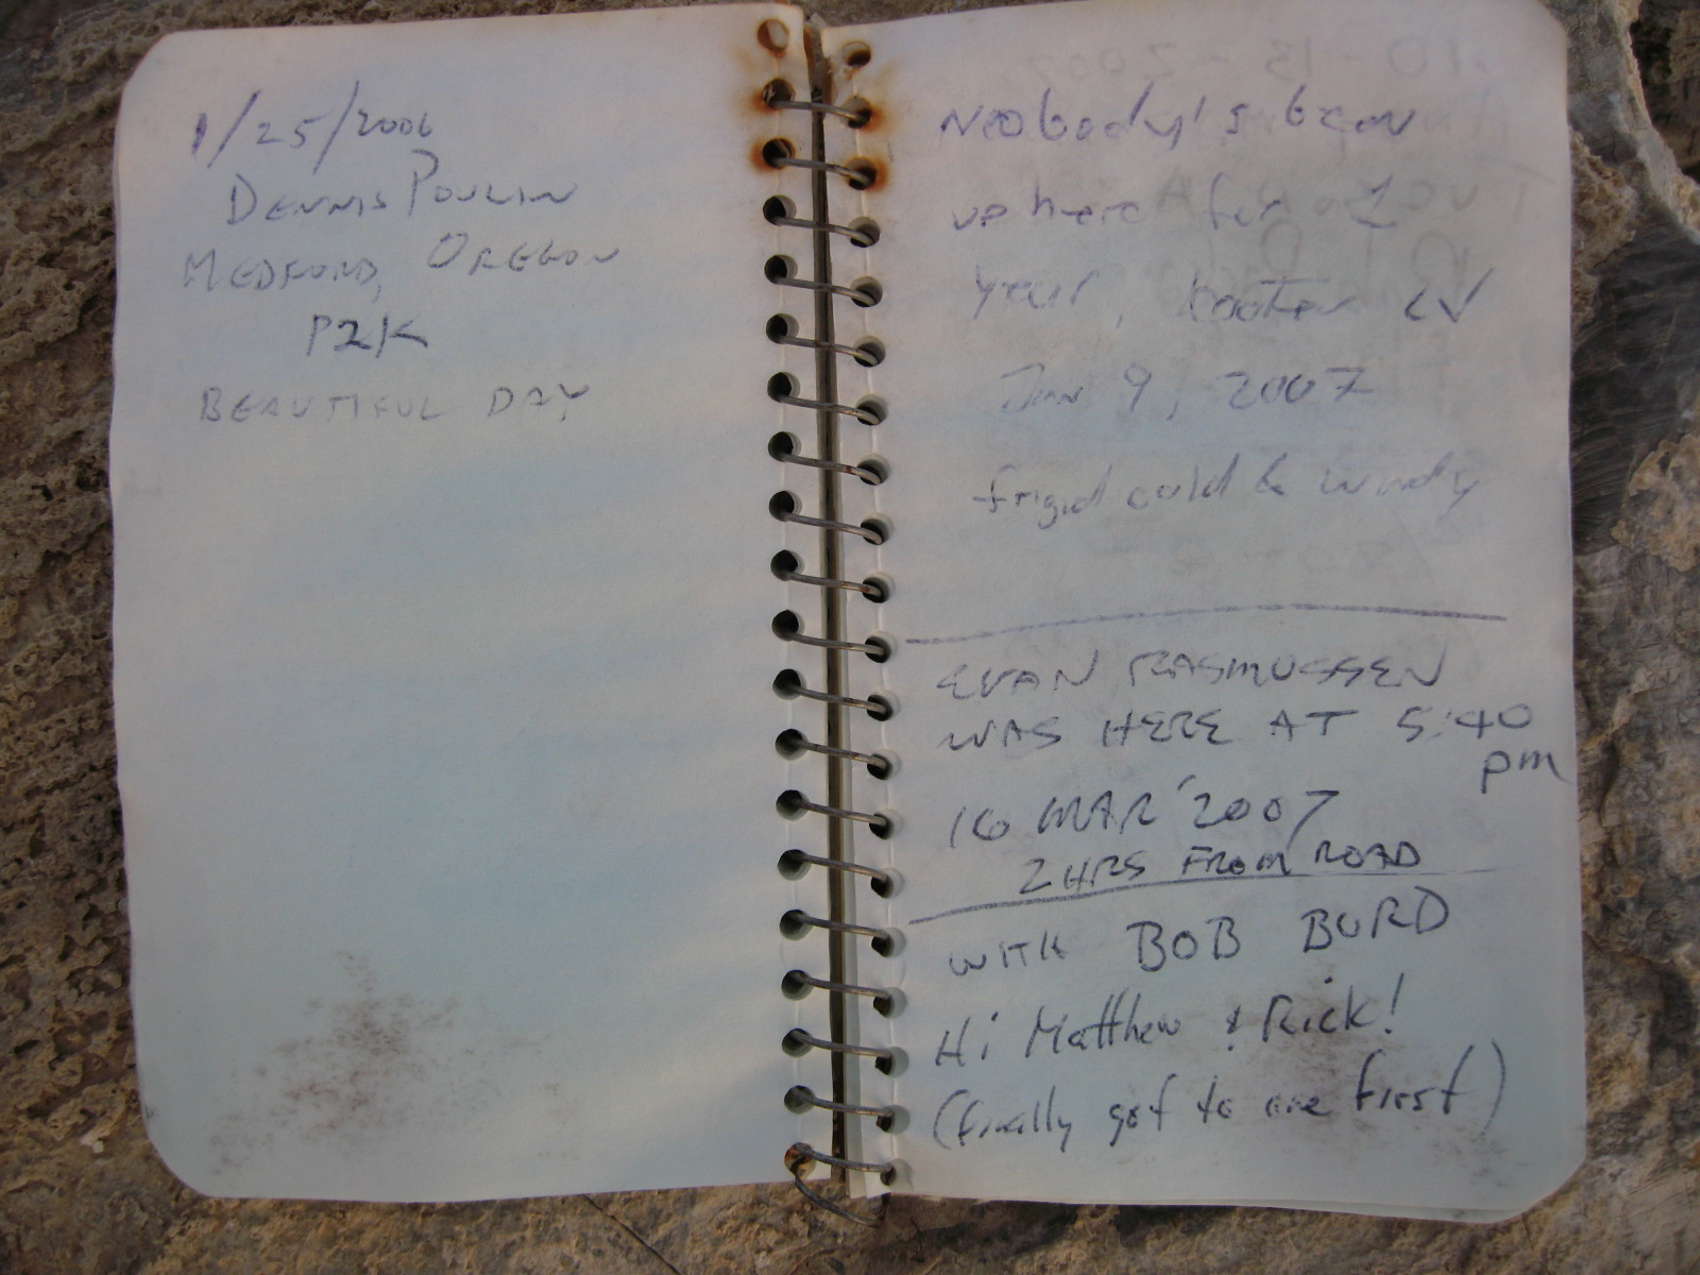 1/25/2006
DENNIS POULIN
MEDFORD, OREGON
P2K
BEAUTIFUL DAY
Nobody's been
up here for 1
year, LV
Jan 9, 2007
frigid cold & windy
EVAN RASMUSSEN
WAS HERE AT 5:40
pm
16 MAR '2007
2 HRS FROM ROAD
WITH BOB BURD
Hi Matthew & Rick!
(finally got to one first)